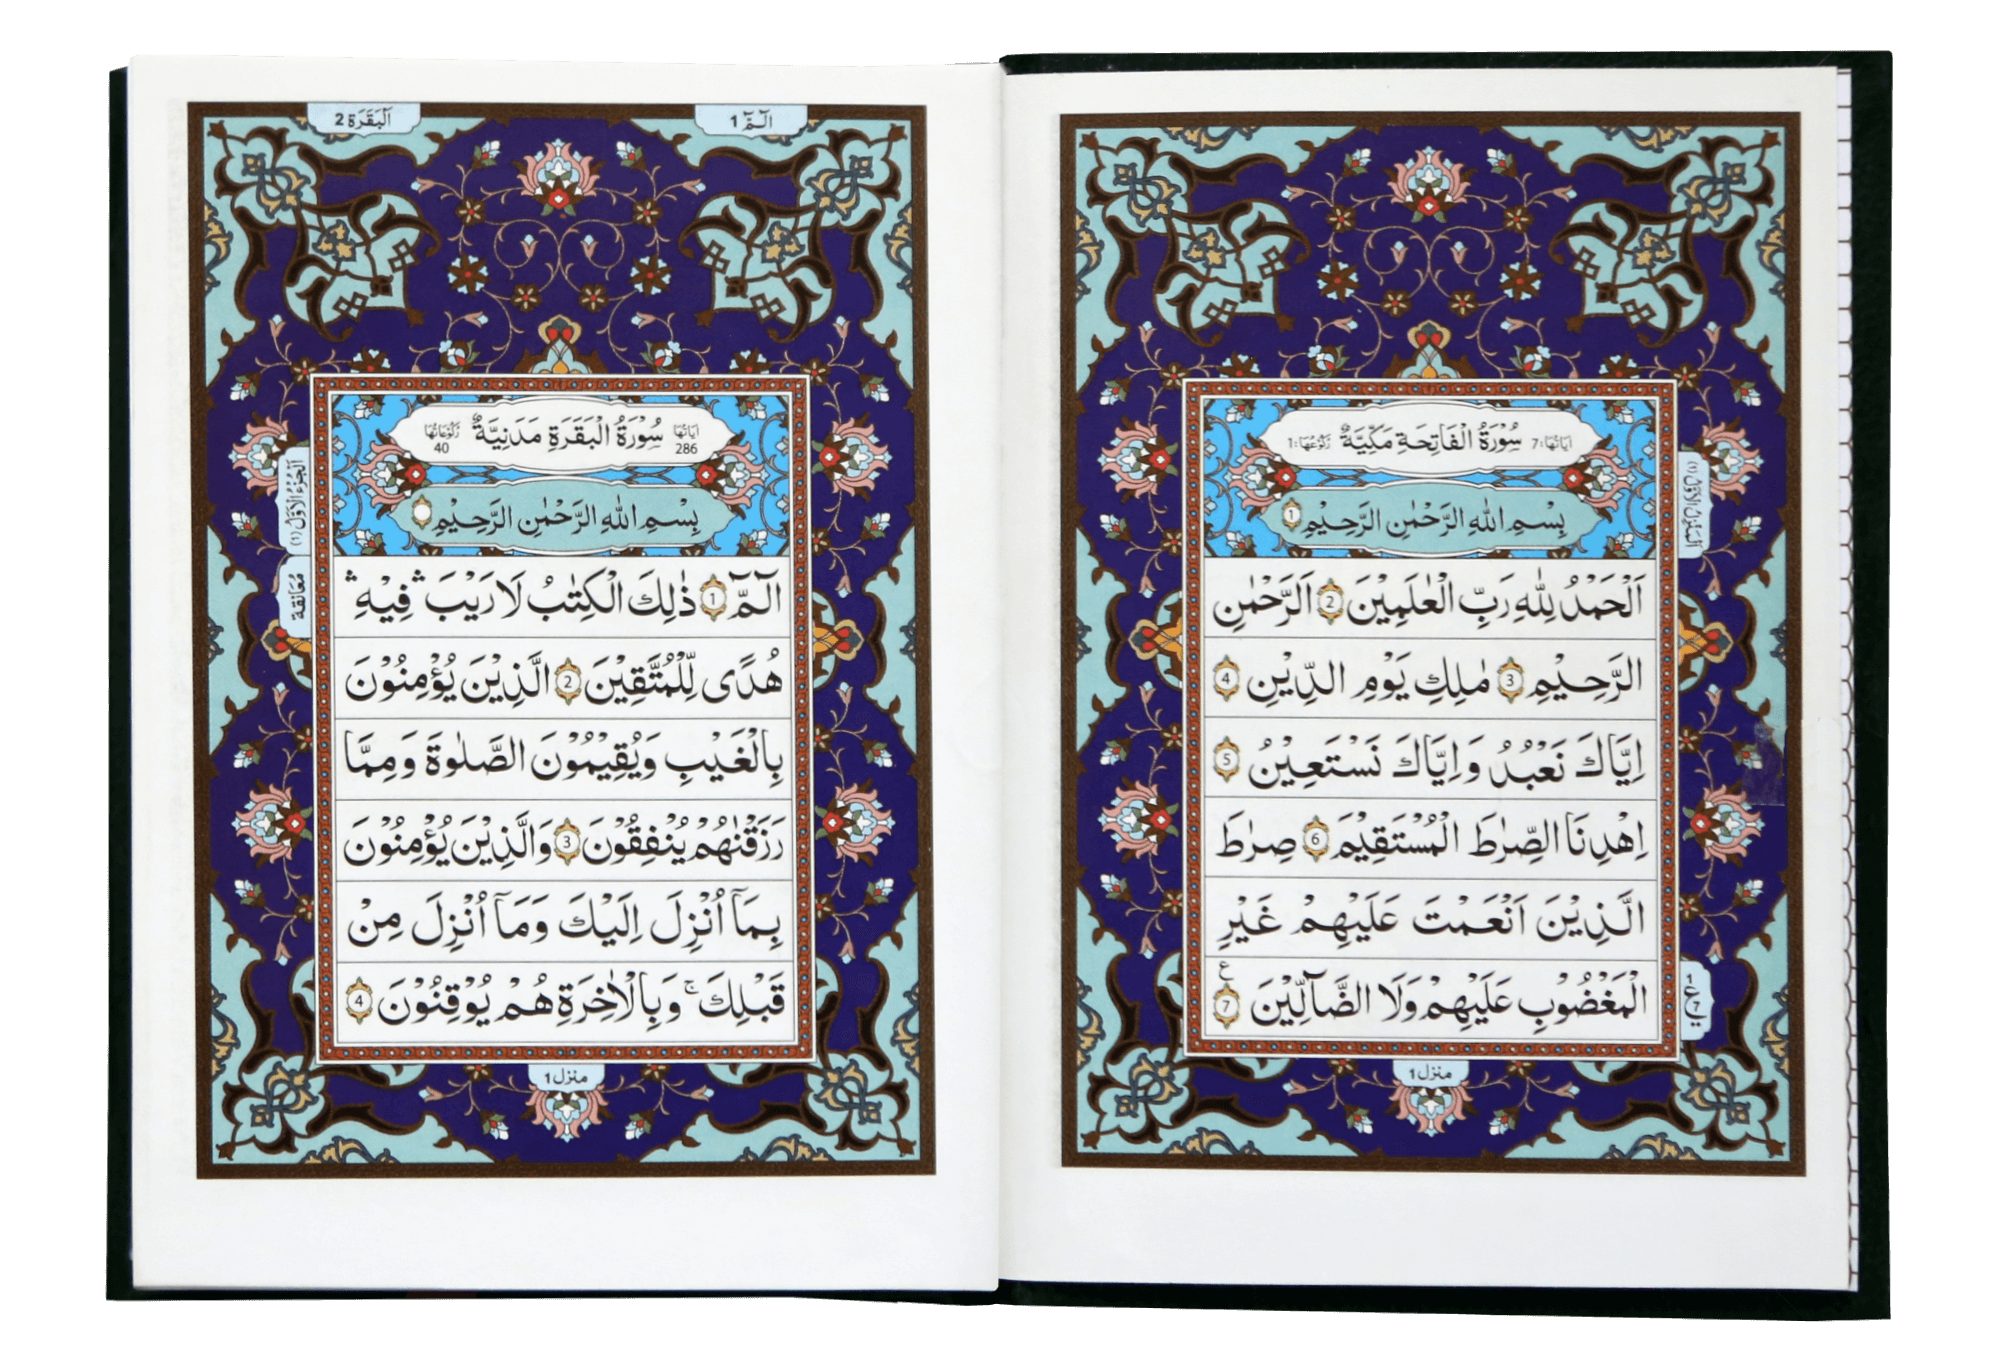 سُوْرَةُ الْفَاتِحَةِ مَكِّيَّةٌ
اٰيَاتُهَا: 7
رُكُوْعُهَا: 1
بِسْمِ اللّٰهِ الرَّحْمٰنِ الرَّحِيْمِ 1
اَلْحَمْدُ لِلّٰهِ رَبِّ الْعٰلَمِيْنَ 2 الرَّحْمٰنِ
الرَّحِيْمِ 3 مٰلِكِ يَوْمِ الدِّيْنِ 4
اِيَّاكَ نَعْبُدُ وَاِيَّاكَ نَسْتَعِيْنُ 5
اِهْدِنَا الصِّرٰطَ الْمُسْتَقِيْمَ 6 صِرٰطَ
الَّذِيْنَ اَنْعَمْتَ عَلَيْهِمْ غَيْرِ
الْمَغْضُوْبِ عَلَيْهِمْ وَلَا الضَّآلِّيْنَ 7
ع
1 ع 7
منزل 1
الٓمّٓ 1
اَلْبَقَرَة 2
سُوْرَةُ الْبَقَرَةِ مَدَنِيَّةٌ
اٰيَاتُهَا 286
رُكُوْعَاتُهَا 40
بِسْمِ اللّٰهِ الرَّحْمٰنِ الرَّحِيْمِ
الٓمّٓ 1 ذٰلِكَ الْكِتٰبُ لَا رَيْبَ ۛ فِيْهِ ۛ
هُدًى لِّلْمُتَّقِيْنَ 2 الَّذِيْنَ يُؤْمِنُوْنَ
بِالْغَيْبِ وَيُقِيْمُوْنَ الصَّلٰوةَ وَمِمَّا
رَزَقْنٰهُمْ يُنْفِقُوْنَ 3 وَالَّذِيْنَ يُؤْمِنُوْنَ
بِمَآ اُنْزِلَ اِلَيْكَ وَمَآ اُنْزِلَ مِنْ
قَبْلِكَ ۚ وَبِالْاٰخِرَةِ هُمْ يُوْقِنُوْنَ 4
اَلْجُزْءُ الْاَوَّلُ (١)
مُعَانقة
منزل 1